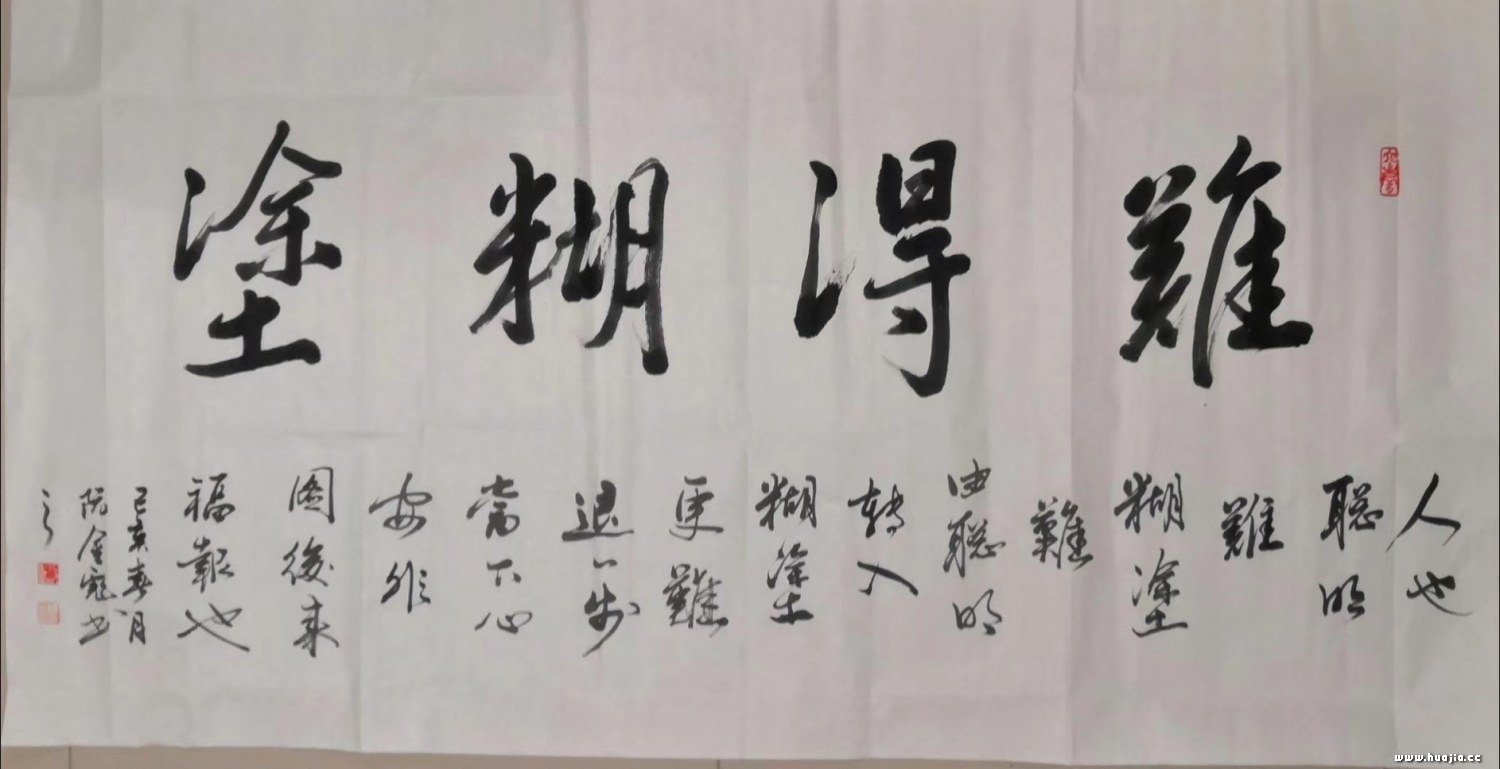 難得糊塗
人也
聪明
難
糊塗
難
由聪明
轉入
糊塗
更難
退一步
當下心
安非
圖後来
福報也
己亥春月
阮金书
www.huajia.cc